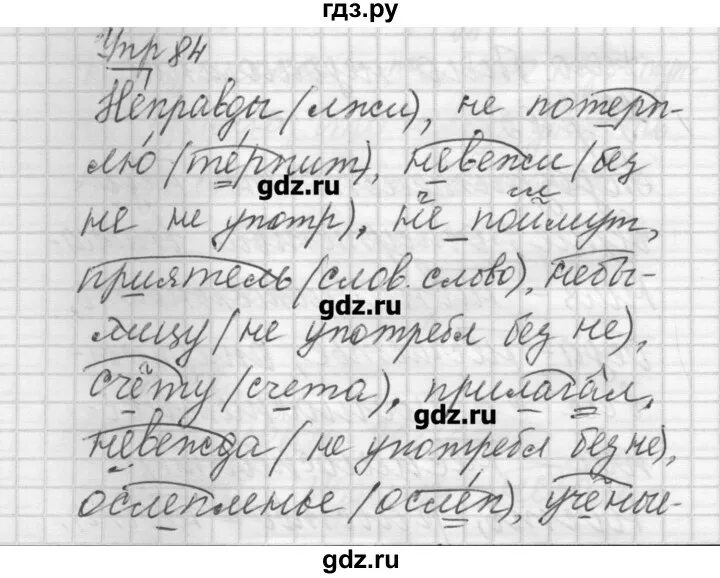 гдз.ру
Упр 84
Неправды (лжи), не потерп-
лю (терпит), невежи (без
gdz.ru
не не употр), не поймут,
приятель (слов. слово), небы-
gdz.ru
лицу (не употребл без не),
счёту (счета), прилагал,
gdz.ru
невежда (не употребл без не),
ослепленье (ослеп), учёны-
gdz.ru